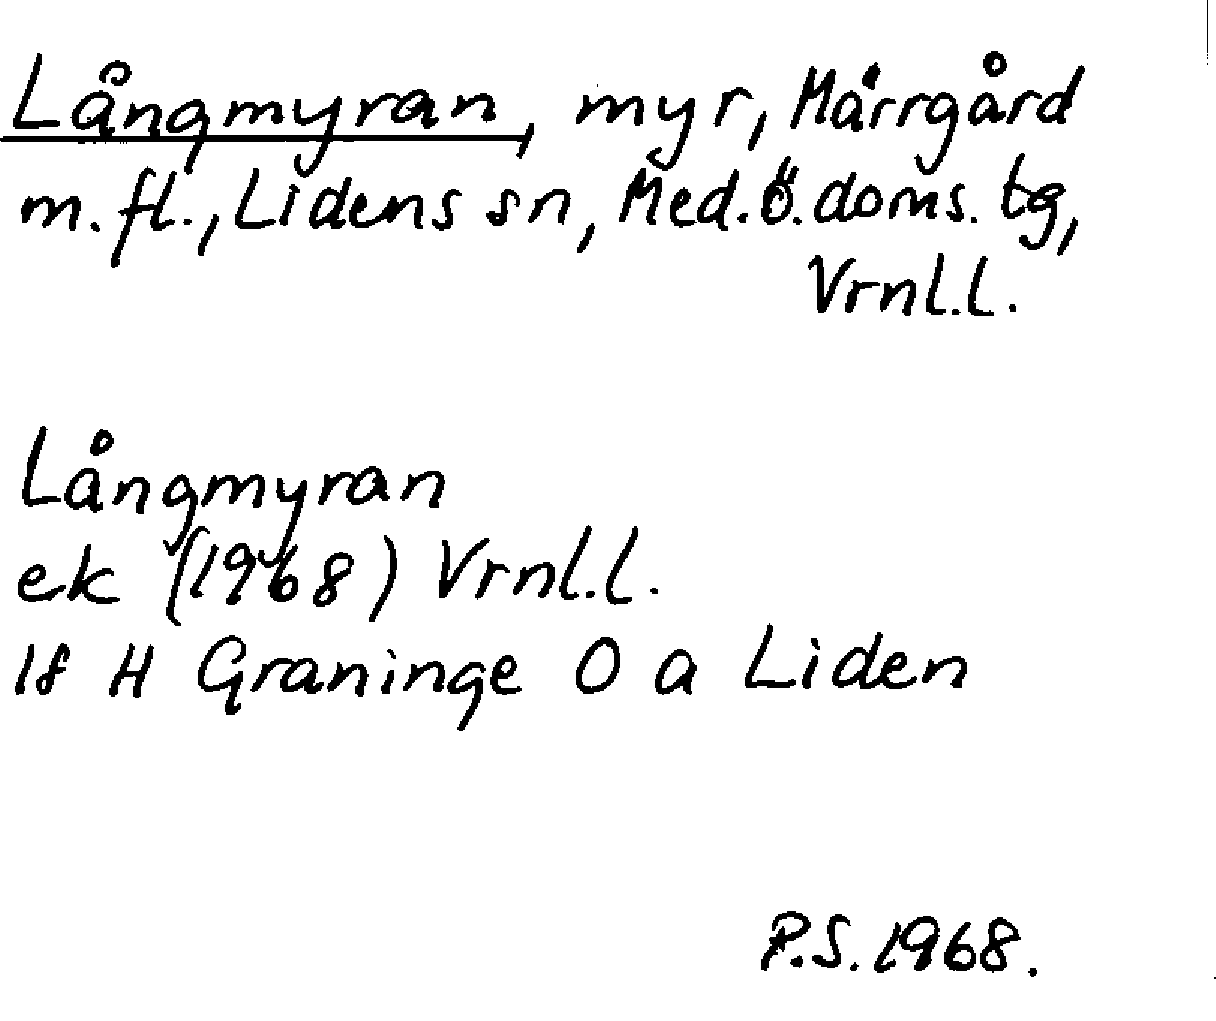 Långmyran, myr, Märrgård
m.fl., Lidens sn, Med.Ö.doms.tg,
Vrnl.l.
Långmyran
ek (1968) Vrnl.l.
If H Graninge O a Liden
P.S.1968.